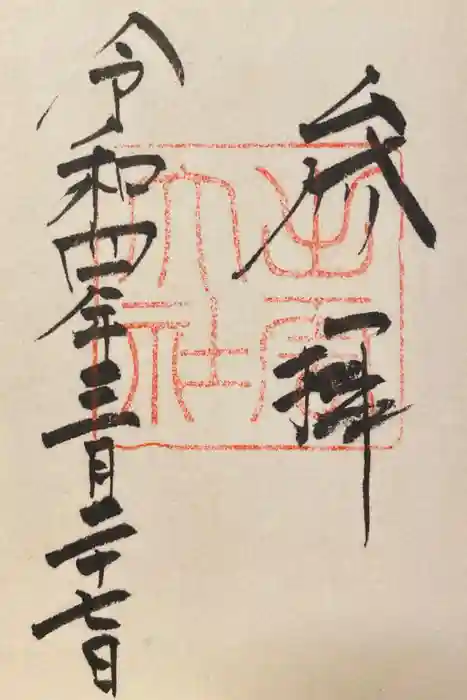 参拝
出雲
大社
令和四年三月二十七日